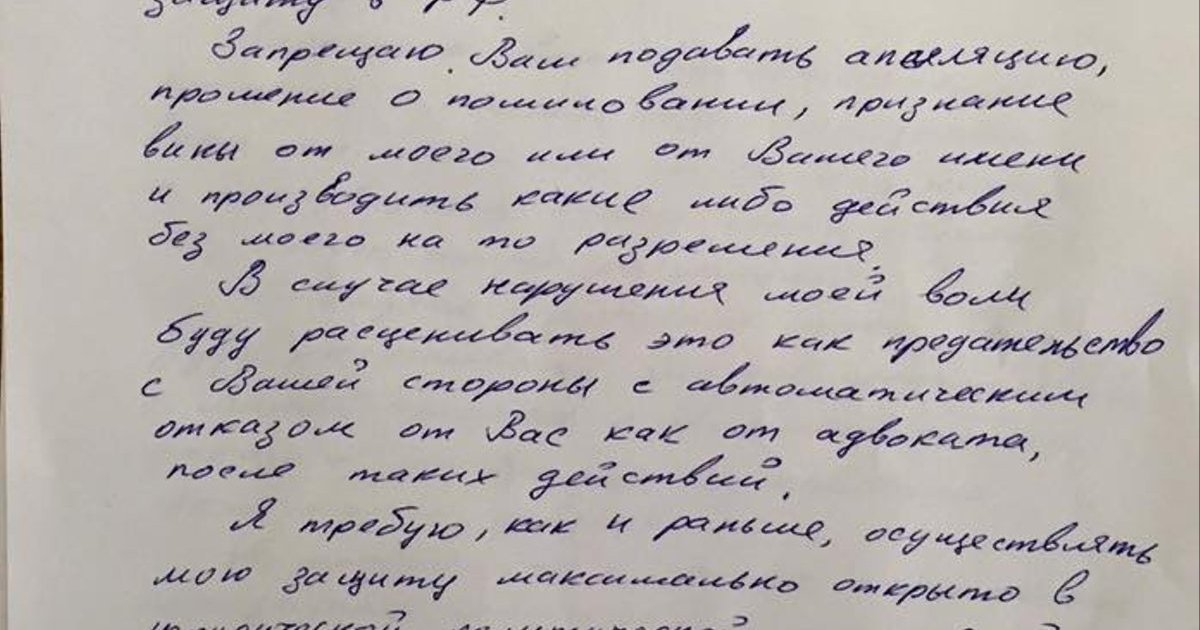 защиту в РФ.
Запрещаю Вам подавать апелляцию,
прошение о помиловании, признание
вины от моего или от Вашего имени
и производить какие либо действия
без моего на то разрешения.
В случае нарушения моей воли
буду расценивать это как предательство
с Вашей стороны с автоматическим
отказом от Вас как от адвоката,
после таких действий.
Я требую, как и раньше, осуществлять
мою защиту максимально открыто в